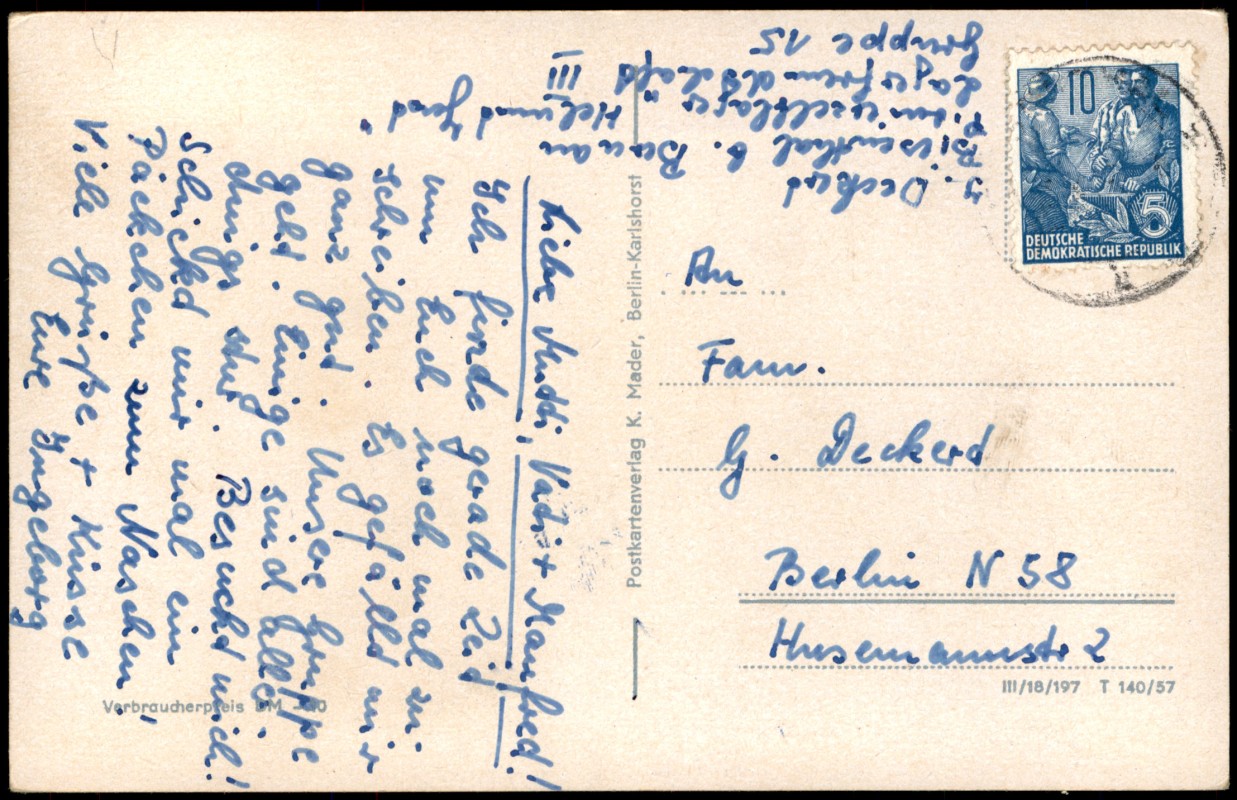 Liebe Mutti, Vati + Manfred!
Ich finde gerade Zeit
um Euch noch mal zu
schreiben. Es gefällt mir
ganz gut. Unsere Gruppe
geht. Einige sind aller-
dings stur. Besucht mich!
Schickt mir mal ein
Päckchen zum Naschen!
Viele Grüße + Küsse
Eure Ingeborg
Verbraucherpreis DM -.10
Postkartenverlag K. Mader, Berlin-Karlshorst
Deckert
Biesenthal b. Bernau
Pionierzeltlager "Helmut Just"
Lagerfreundschaft III
Gruppe 15
10
5
DEUTSCHE
DEMOKRATISCHE REPUBLIK
An
Fam.
G. Deckert
Berlin N 58
Husemannstr 2
III/18/197 T 140/57